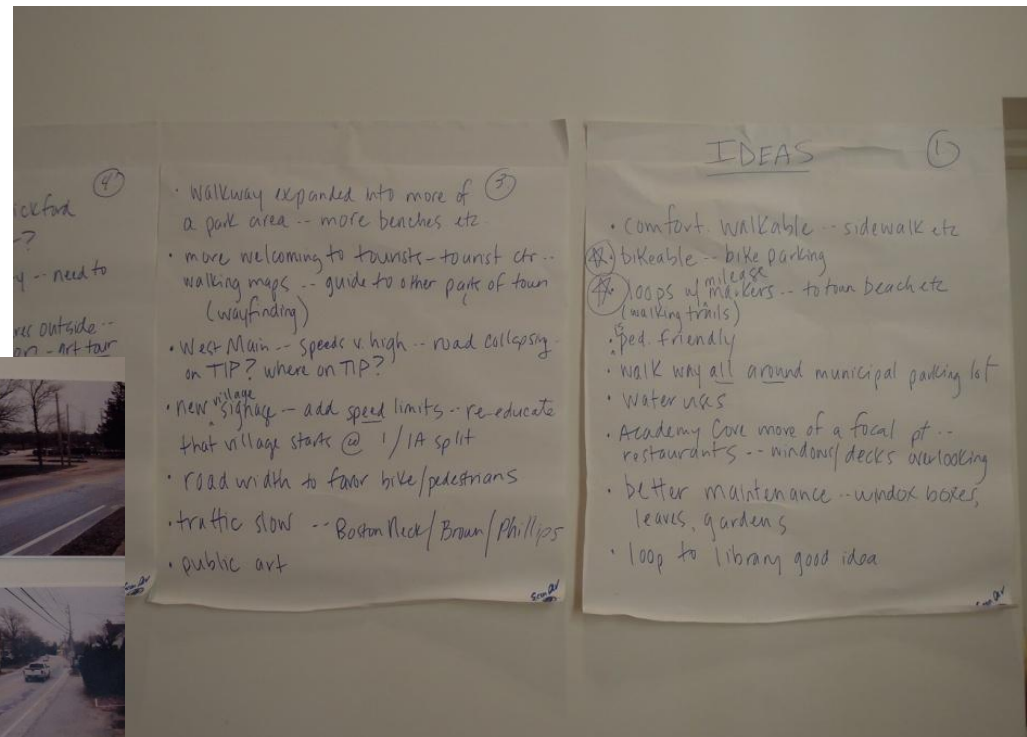 4
ickford
-?
y -- need to
res outside --
- art tour
3
· walkway expanded into more of
a park area -- more benches etc.
· more welcoming to tourists - tourist ctr --
walking maps -- guide to other parts of town
(wayfinding)
· West Main -- speeds v. high -- road collapsing -
on TIP? where on TIP?
· new village signage - add speed limits -- re-educate
that village starts @ 1/1A split
· road width to favor bike/pedestrians
· traffic slow -- Boston Neck/Brown/Phillips
· public art
Econ Dev
IDEAS 1
· comfort. walkable -- sidewalk etc
· bikeable -- bike parking
· loops w/ mileage markers -- to town beach etc
(walking trails)
· is ped. friendly
· walk way all around municipal parking lot
· water uses
· Academy Cove more of a focal pt --
restaurants -- windows/decks overlooking
· better maintenance -- window boxes,
leaves, gardens
· loop to library good idea
Econ Dev